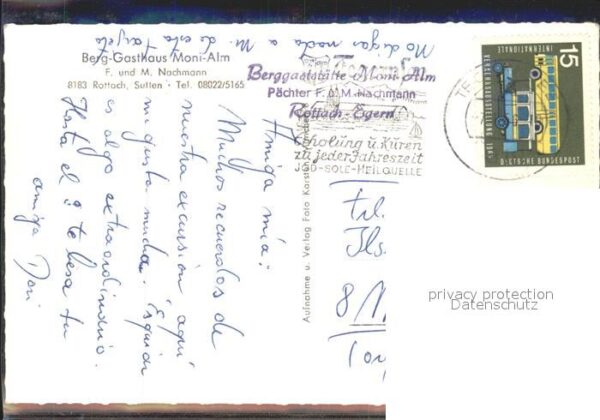 Berg-Gasthaus Moni-Alm
F. und M. Nachmann
8183 Rottach, Sutten · Tel. 08022/5165
No digas nada a M. de esta tarjeta
Berggaststätte Moni-Alm
Pächter F. u. M. Nachmann
Rottach-Egern
Erholung u. Kuren
zu jeder Jahreszeit
JOD-SOLE-HEILQUELLE
15
INTERNATIONALE
VERKEHRSAUSSTELLUNG 1965
DEUTSCHE BUNDESPOST
Amiga mía:
Muchos recuerdos de
nuestra excursión aquí
me gusta mucho. Esquiar
es algo extraordinario.
Hasta el 2 te besa tu
amiga Dori
Aufnahme u. Verlag Foto
8
privacy protection
Datenschutz